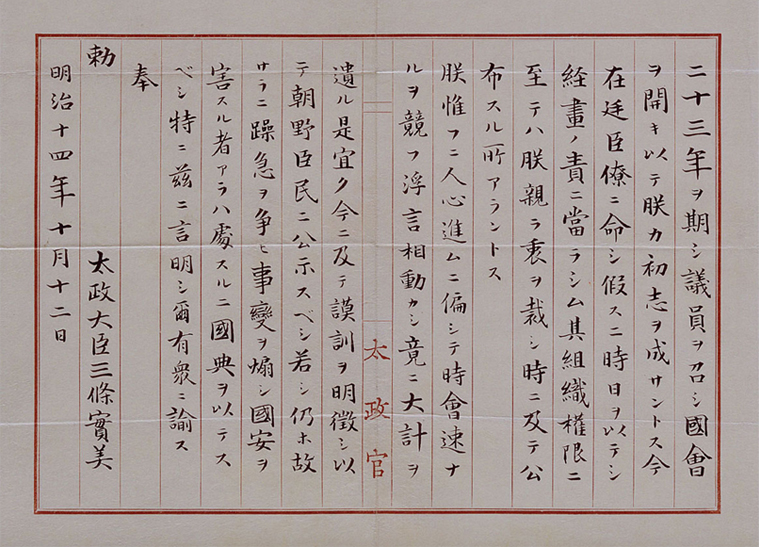 二十三年ヲ期シ議員ヲ召シ國會
ヲ開キ以テ朕カ初志ヲ成サントス今
在廷臣僚ニ命シ假スニ時日ヲ以テシ
經畫ノ責ニ當ラシム其組織權限ニ
至テハ朕親ラ衷ヲ裁シ時ニ及テ公
布スル所アラントス
朕惟フニ人心進ムニ偏シテ時會速ナ
ルヲ競フ浮言相動カシ竟ニ大計ヲ
太政官
遺ル是宜ク今ニ及テ謨訓ヲ明徴シ以
テ朝野臣民ニ公示スベシ若シ仍ホ故
サラニ躁急ヲ争ヒ事變ヲ煽シ國安ヲ
害スル者アラハ處スルニ國典ヲ以テス
ベシ特ニ茲ニ言明シ爾有衆ニ諭ス
奉
勅　太政大臣三條實美
明治十四年十月十二日